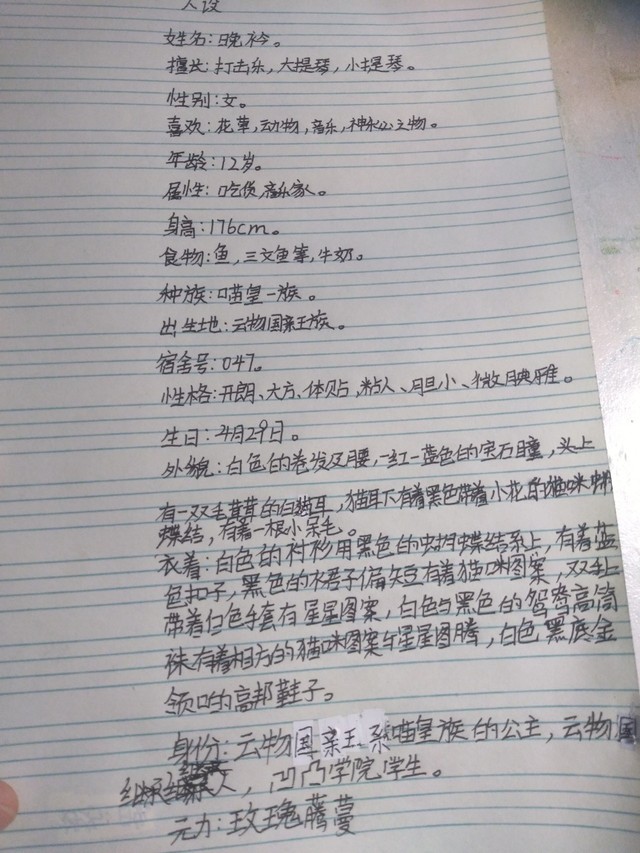 人设
姓名:晚衿。
擅长:打击乐,大提琴,小提琴。
性别:女。
喜欢:花草,动物,音乐,神秘公主物。
年龄:12岁。
属性:吃货,音乐家。
身高:176cm。
食物:鱼,三文鱼等,牛奶。
种族:喵皇一族。
出生地:云物国亲王族。
宿舍号:047。
性格:开朗、大方、体贴,粘人、胆小、微腴雅。
生日:4月29日。
外貌:白色的卷发及腰,一红一蓝色的宝石瞳,头上
有一双毛茸茸的白猫耳,猫耳下有着黑色带着小花的猫咪蝴
蝶结,有着一根小呆毛。
衣着:白色的衬衫用黑色的蝴蝶结系上,有着蓝
色扣子,黑色的水君子偏短有着猫咪图案,双手上
带着白色手套有星星图案,白色与黑色的鸳鸯高筒
袜有着相方的猫咪图案与星星图腾,白色黑底金
领口的高邦鞋子。
身份:云物国亲王系喵皇族的公主,云物国
继承人,凹凸学院学生。
元力:玫瑰藤蔓